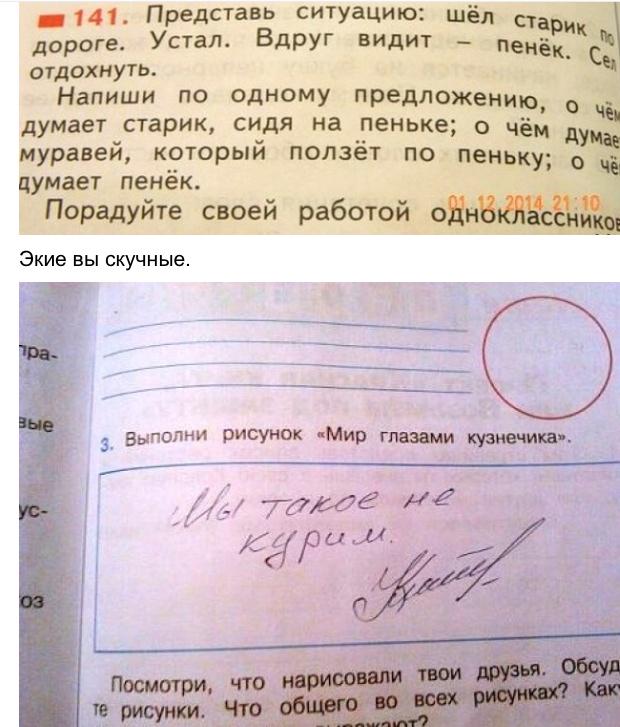 141. Представь ситуацию: шёл старик по
дороге. Устал. Вдруг видит – пенёк. Сел
отдохнуть.
Напиши по одному предложению, о чём
думает старик, сидя на пеньке; о чём думае
муравей, который ползёт по пеньку; о чё
думает пенёк.
01.12.2014 21:10
Порадуйте своей работой одноклассников
Экие вы скучные.
пра-
вые
3. Выполни рисунок «Мир глазами кузнечика».
Мы такое не
курим.
ус-
оз
Посмотри, что нарисовали твои друзья. Обсуд
те рисунки. Что общего во всех рисунках? Как